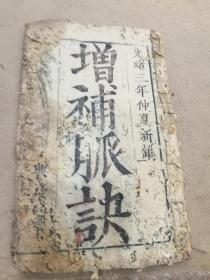 光緒三年仲夏新鐫
增補脈訣